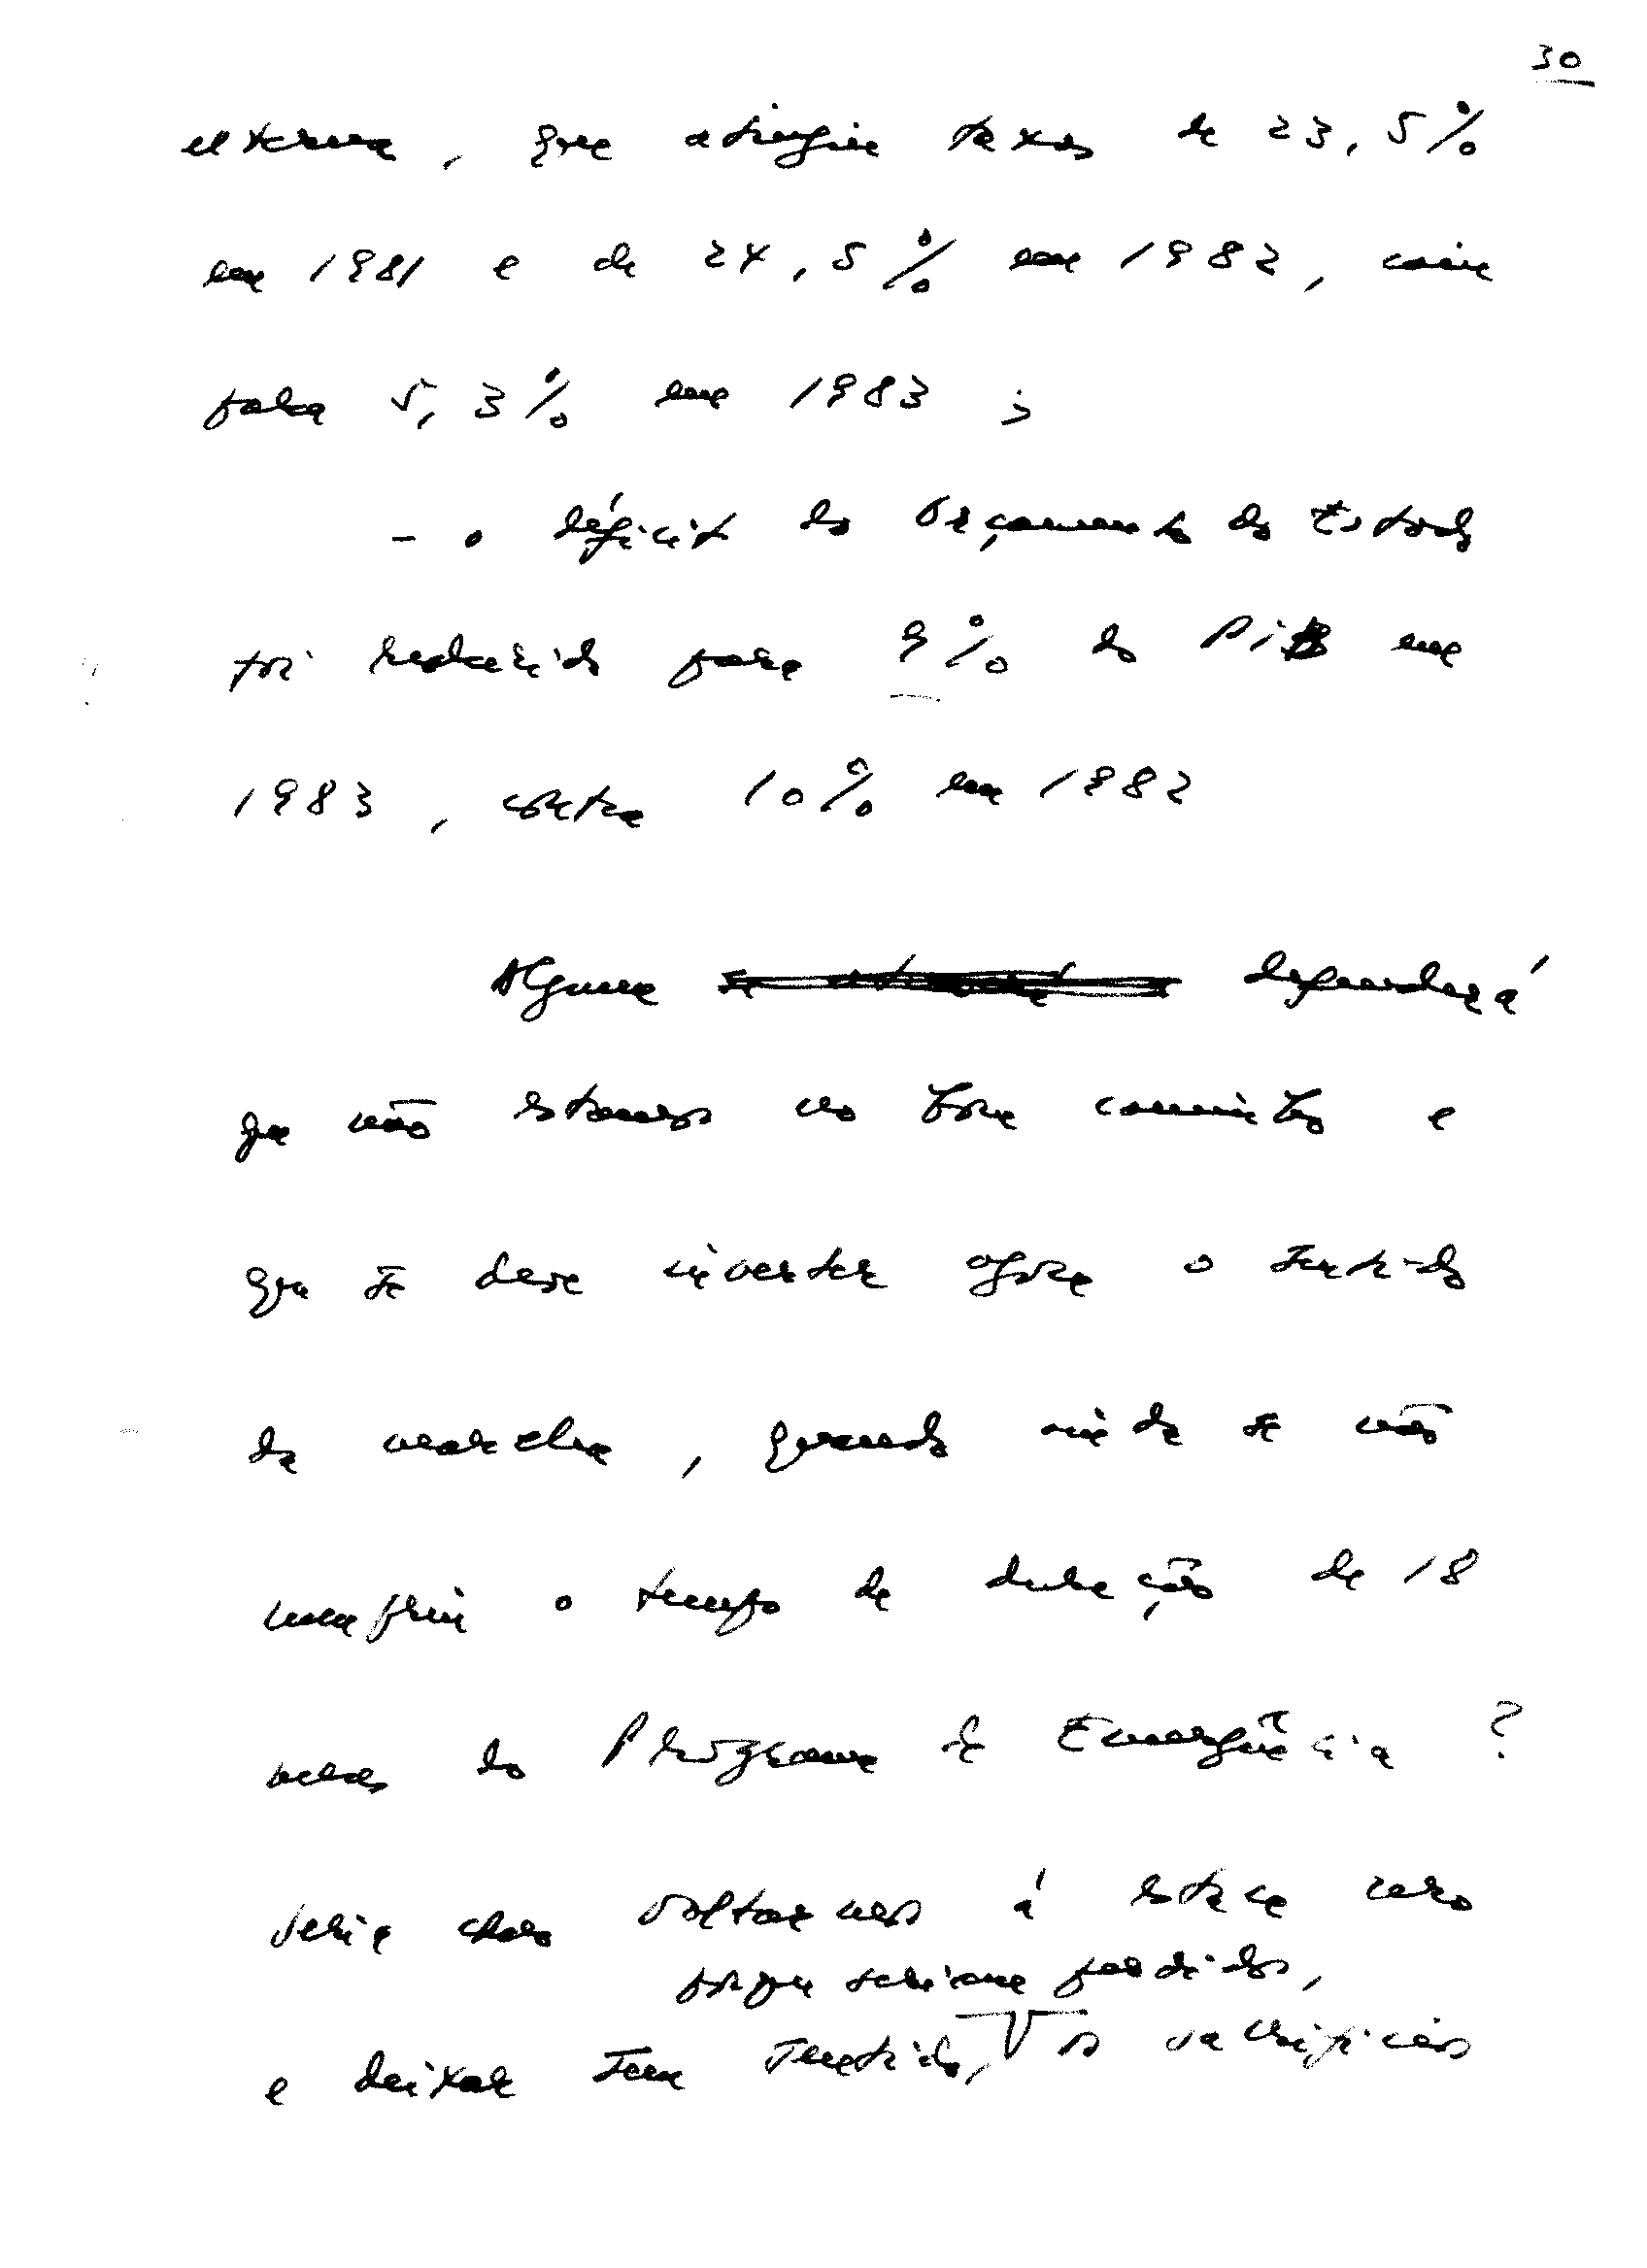 30
externa, que atingiu taxas de 23,5%
em 1981 e de 24,5% em 1982, caiu
para 5,3% em 1983;
- o déficit do Orçamento do Estado
foi reduzido para 9% do PiB em
1983, contra 10% em 1982
Alguem defenderá
que não estamos no bom caminho e
que se deve inverter agora o sentido
da marcha, quando ainda se não
cumpriu o tempo de duração de 18
meses do Programa de Emergência?
Seria caso voltarmos á estaca zero
porque seriam perdidos,
e deixar sem sentido, os sacrificios